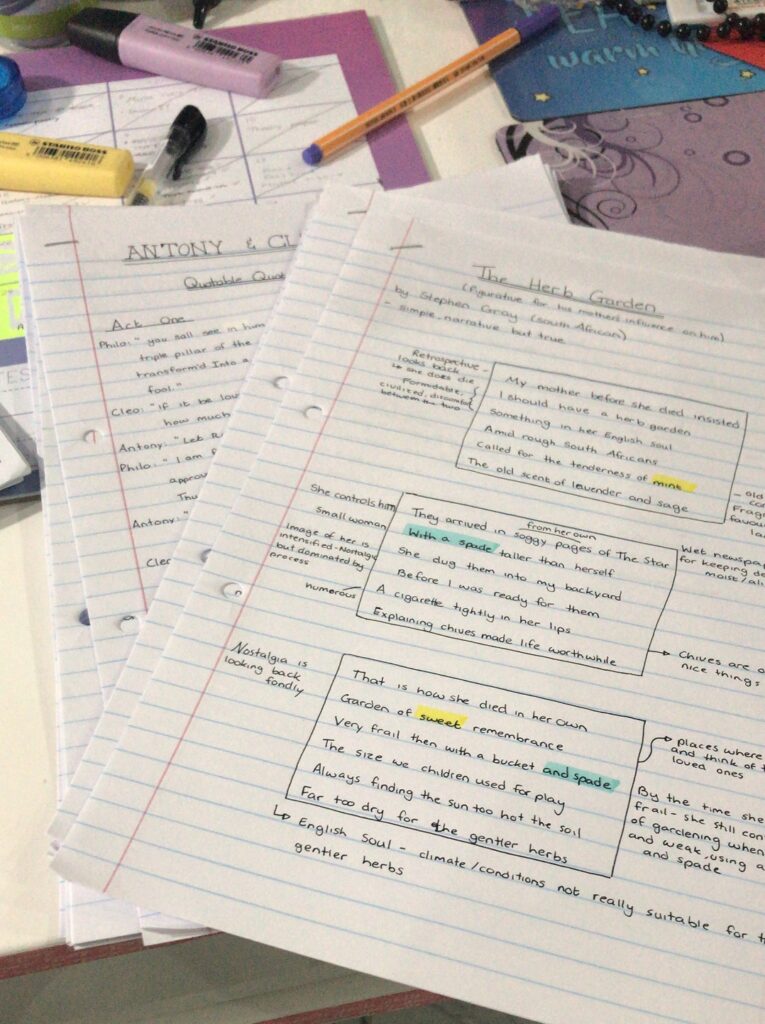 STABILO BOSS
STABILO BOSS
warm
ANTONY & CL
Quotable Quot
Act One
Philo: "you sall see in him
triple pillar of the
transform'd into a
fool."
Cleo: "If it be lov
how much
Antony: "Let R
Philo: "I am f
approv
Thu
Antony: "
Cleo
The Herb Garden
(figurative for his mothers influence on him)
by Stephen Gray (South African)
- simple narrative but true
Retrospective -
looks back
↳ she does die
Formidable,
civilized, discomfort
between the two
My mother before she died insisted
I should have a herb garden
Something in her English soul
Amid rough South Africans
Called for the tenderness of mint
The old scent of lavender and sage
- old
Frag
favou
She controls him
small woman
Image of her is
intensified-Nostalgic
but dominated by
process
humorous
from her own
They arrived in soggy pages of The Star
With a spade taller than herself
She dug them into my backyard
Before I was ready for them
A cigarette tightly in her lips
Explaining chives made life worthwhile
Wet newspap
for keeping de
moist/ali
Chives are o
nice things
Nostalgia is
looking back
fondly
That is how she died in her own
Garden of sweet remembrance
Very frail then with a bucket and spade
The size we children used for play
Always finding the sun too hot the soil
Far too dry for the gentler herbs
Places where
and think of t
loved ones
By the time she
frail - she still con
of gardening when
and weak, using a
and spade
↳ English Soul - climate/conditions not really suitable for th
gentler herbs